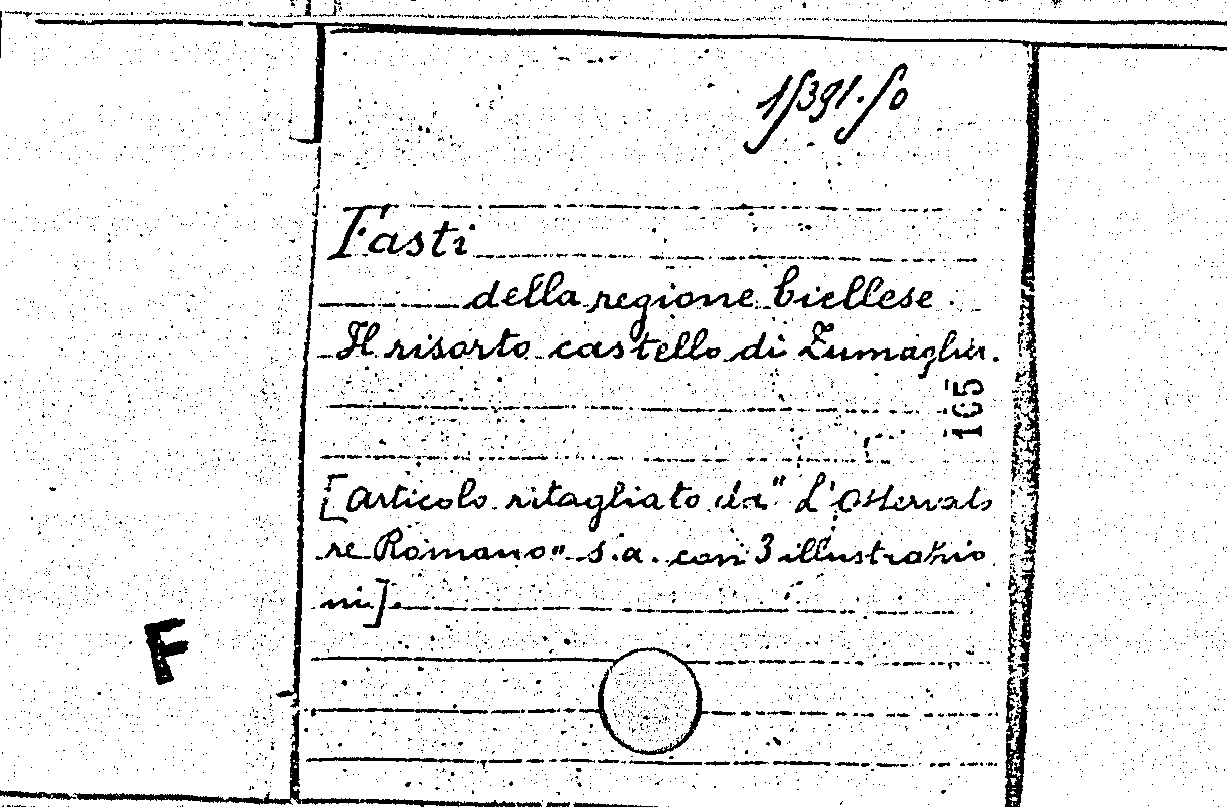 1/391.50
Fasti
della regione biellese.
Il risorto castello di Zumaglia.
105
[articolo ritagliato da "L'Osservato
re Romano" s.a. con 3 illustrazio
ni].
F